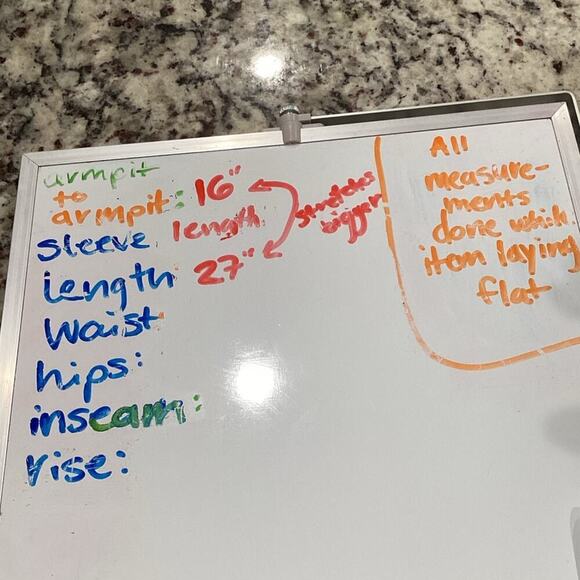 armpit
to
armpit: 16"
sleeve length
length 27"
stretches
bigger
Waist
hips:
inseam:
rise:
All
measure-
ments
done which
item laying
flat